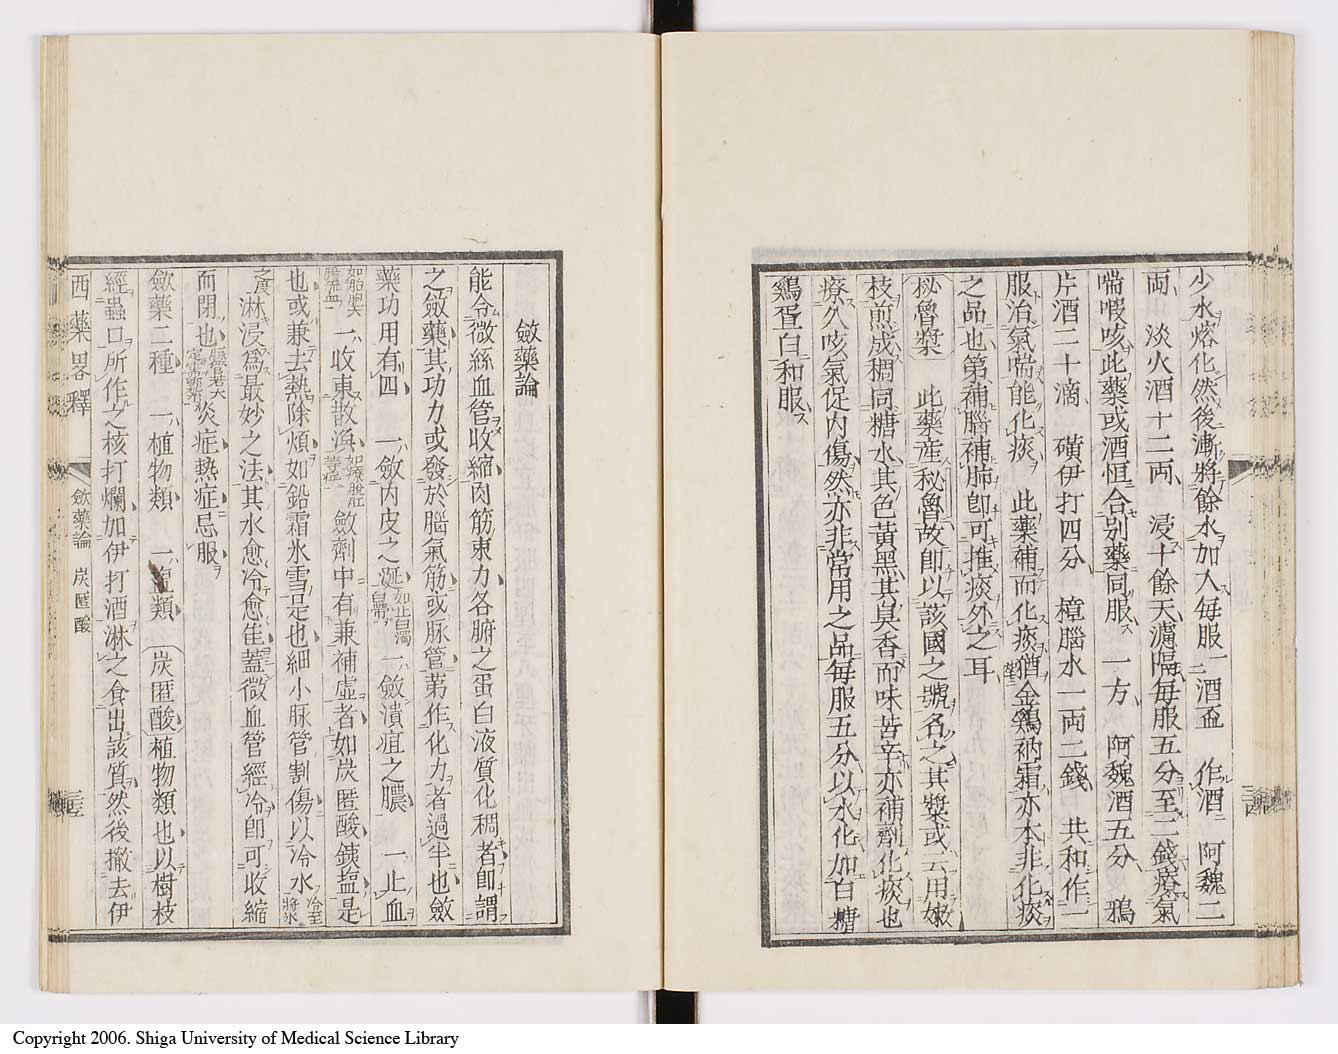 少水熔化然後漸將餘水加入每服一二酒盃　作酒　阿魏二
両　淡火酒十二両　浸十餘天濾隔每服五分至二錢療氣
喘嘏咳此藥或酒恒合别藥同服　一方　阿魏酒五分　鴉
片酒二十滴　磺伊打四分　樟腦水一両二錢　共和作一
服治氣喘能化痰　此藥補而化痰猶金鷄衲霜亦本非化痰
之品也第補腦補肺卽可推痰外之耳
秘魯漿　此藥產秘魯故卽以該國之號名之其漿或云用嫩
枝煎成稠同糖水其色黃黑其臭香而味苦辛亦補劑化痰也
療久咳氣促内傷然亦非常用之品每服五分以水化加白糖
鷄蛋白和服
斂藥論
能令微絲血管收縮肉筋束力各腑之蛋白液質化稠者卽謂
之斂藥其功力或發於腦氣筋或脉管第作化力者過半也斂
藥功用有四　一斂内皮之涎如止白濁白帶　一斂潰疽之膿　一止血
一收束散渙如療脫肛　斂劑中有兼補虛者如炭匿酸鉄塩是
也或兼去熱除煩如鉛霜氷雪是也細小脉管割傷以冷水冷至將氷
之度淋浸爲最妙之法其水愈冷愈隹蓋微血管經冷卽可收縮
而閉也　炎症熱症忌服
斂藥二種　一植物類　一類　炭匿酸植物類也以樹枝
經蟲口所作之核打爛加伊打酒淋之食出該質然後撤去伊
西藥畧釋　斂藥論　炭匿酸